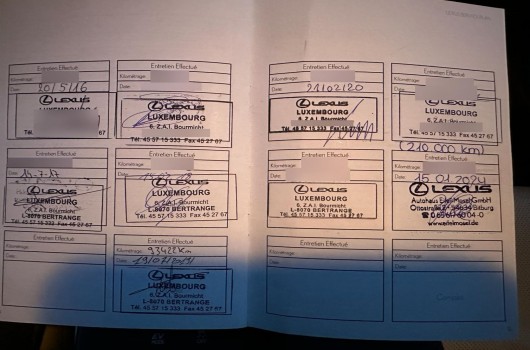 Entretien Effectué
Kilométrage:
Date: 20/5/16
LEXUS
LUXEMBOURG
Tél. 67
Entretien Effectué
Kilométrage:
Date:
LEXUS
LUXEMBOURG
6, Z.A.I. Bourmicht
Tél. 45 57 15 333 Fax 45 27 67
Entretien Effectué
Date: 14.7.17
LEXUS
LUXEMBOURG
6, Z.A.I. Bourmicht
L-8070 BERTRANGE
Tél. 45 57 15 333 Fax 45 27 67
Entretien Effectué
Kilométrage:
Date:
LEXUS
LUXEMBOURG
6, Z.A.I. Bourmicht
L-8070 BERTRANGE
Tél. 45 57 15 333 Fax 45 27 67
Entretien Effectué
Kilométrage:
Date:
Entretien Effectué
Kilométrage: 93422Km
Date: 19/07/2019
LEXUS
LUXEMBOURG
6, Z.A.I. Bourmicht
L-8070 BERTRANGE
Tél. 45 57 15 333 Fax 45 27 67
Entretien Effectué
Kilométrage:
Date: 21/02/20
LEXUS
LUXEMBOURG
6, Z.A.I. Bourmicht
Tél. 45 57 15 333 Fax 45 27 67
Entretien Effectué
Kilométrage:
Date:
LEXUS
LUXEMBOURG
6, Z.A.I. Bourmicht
Tél. 45 57 15 333 Fax 45 27 67
Entretien Effectué
Kilométrage:
Date:
LEXUS
LUXEMBOURG
6, Z.A.I. Bourmicht
L-8070 BERTRANGE
Tél. 45 57 15 333 Fax 45 27 67
(210 000 km)
Entretien Effectué
Kilométrage:
Date: 15 02 2024
LEXUS
Autohaus Eifel Mosel GmbH
54634 Bitburg
Entretien Effectué
Kilométrage:
Date:
Entretien Effectué
Kilométrage:
Date: